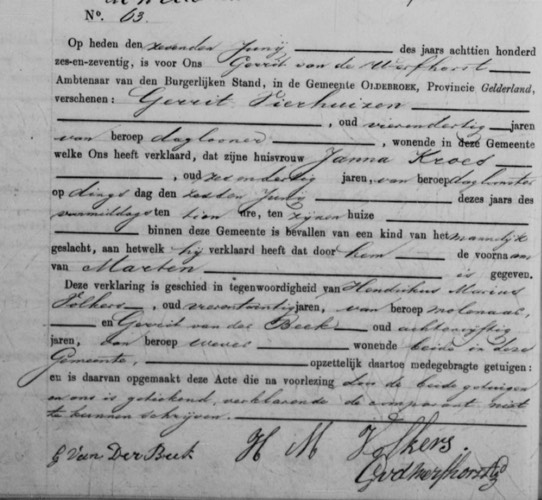 No. 63.
Op heden den zevenden Junij des jaars achttien honderd
zes-en-zeventig, is voor Ons Gerrit van de Werfhorst
Ambtenaar van den Burgerlijken Stand, in de Gemeente OLDEBROEK, Provincie Gelderland,
verschenen: Gerrit Vierhuizen
, oud vierendertig jaren
van beroep daglooner, wonende in deze Gemeente
welke Ons heeft verklaard, dat zijne huisvrouw Janna Kroes
, oud zesendertig jaren, van beroep daglonster
op dings dag den zesden Junij dezes jaars des
voormiddags ten tien ure, ten zijnen huize
binnen deze Gemeente is bevallen van een kind van het mannelijk
geslacht, aan hetwelk hij verklaard heeft dat door hem de voornaam
van Marten is gegeven.
Deze verklaring is geschied in tegenwoordigheid van Hendrikus Marius
Folkers, oud jaren, van beroep molenaar,
en Gerrit van der Beek oud achtenvijftig
jaren, van beroep wever wonende beide in deze
Gemeente, opzettelijk daartoe medegebragte getuigen:
en is daarvan opgemaakt deze Acte die na voorlezing door de beide getuigen
en ons is geteekend, verklarende de comparant niet
te kunnen schrijven.
G Van Der Beek H M Folkers.
GvdWerfhorst